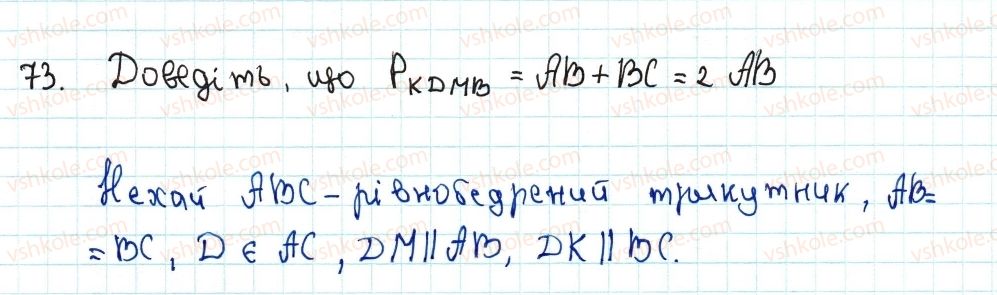 73. Доведіть, що P_KDMB = AB + BC = 2 AB
Нехай ABC – рівнобедрений трикутник, AB=
= BC, D ∈ AC, DM || AB, DK || BC.